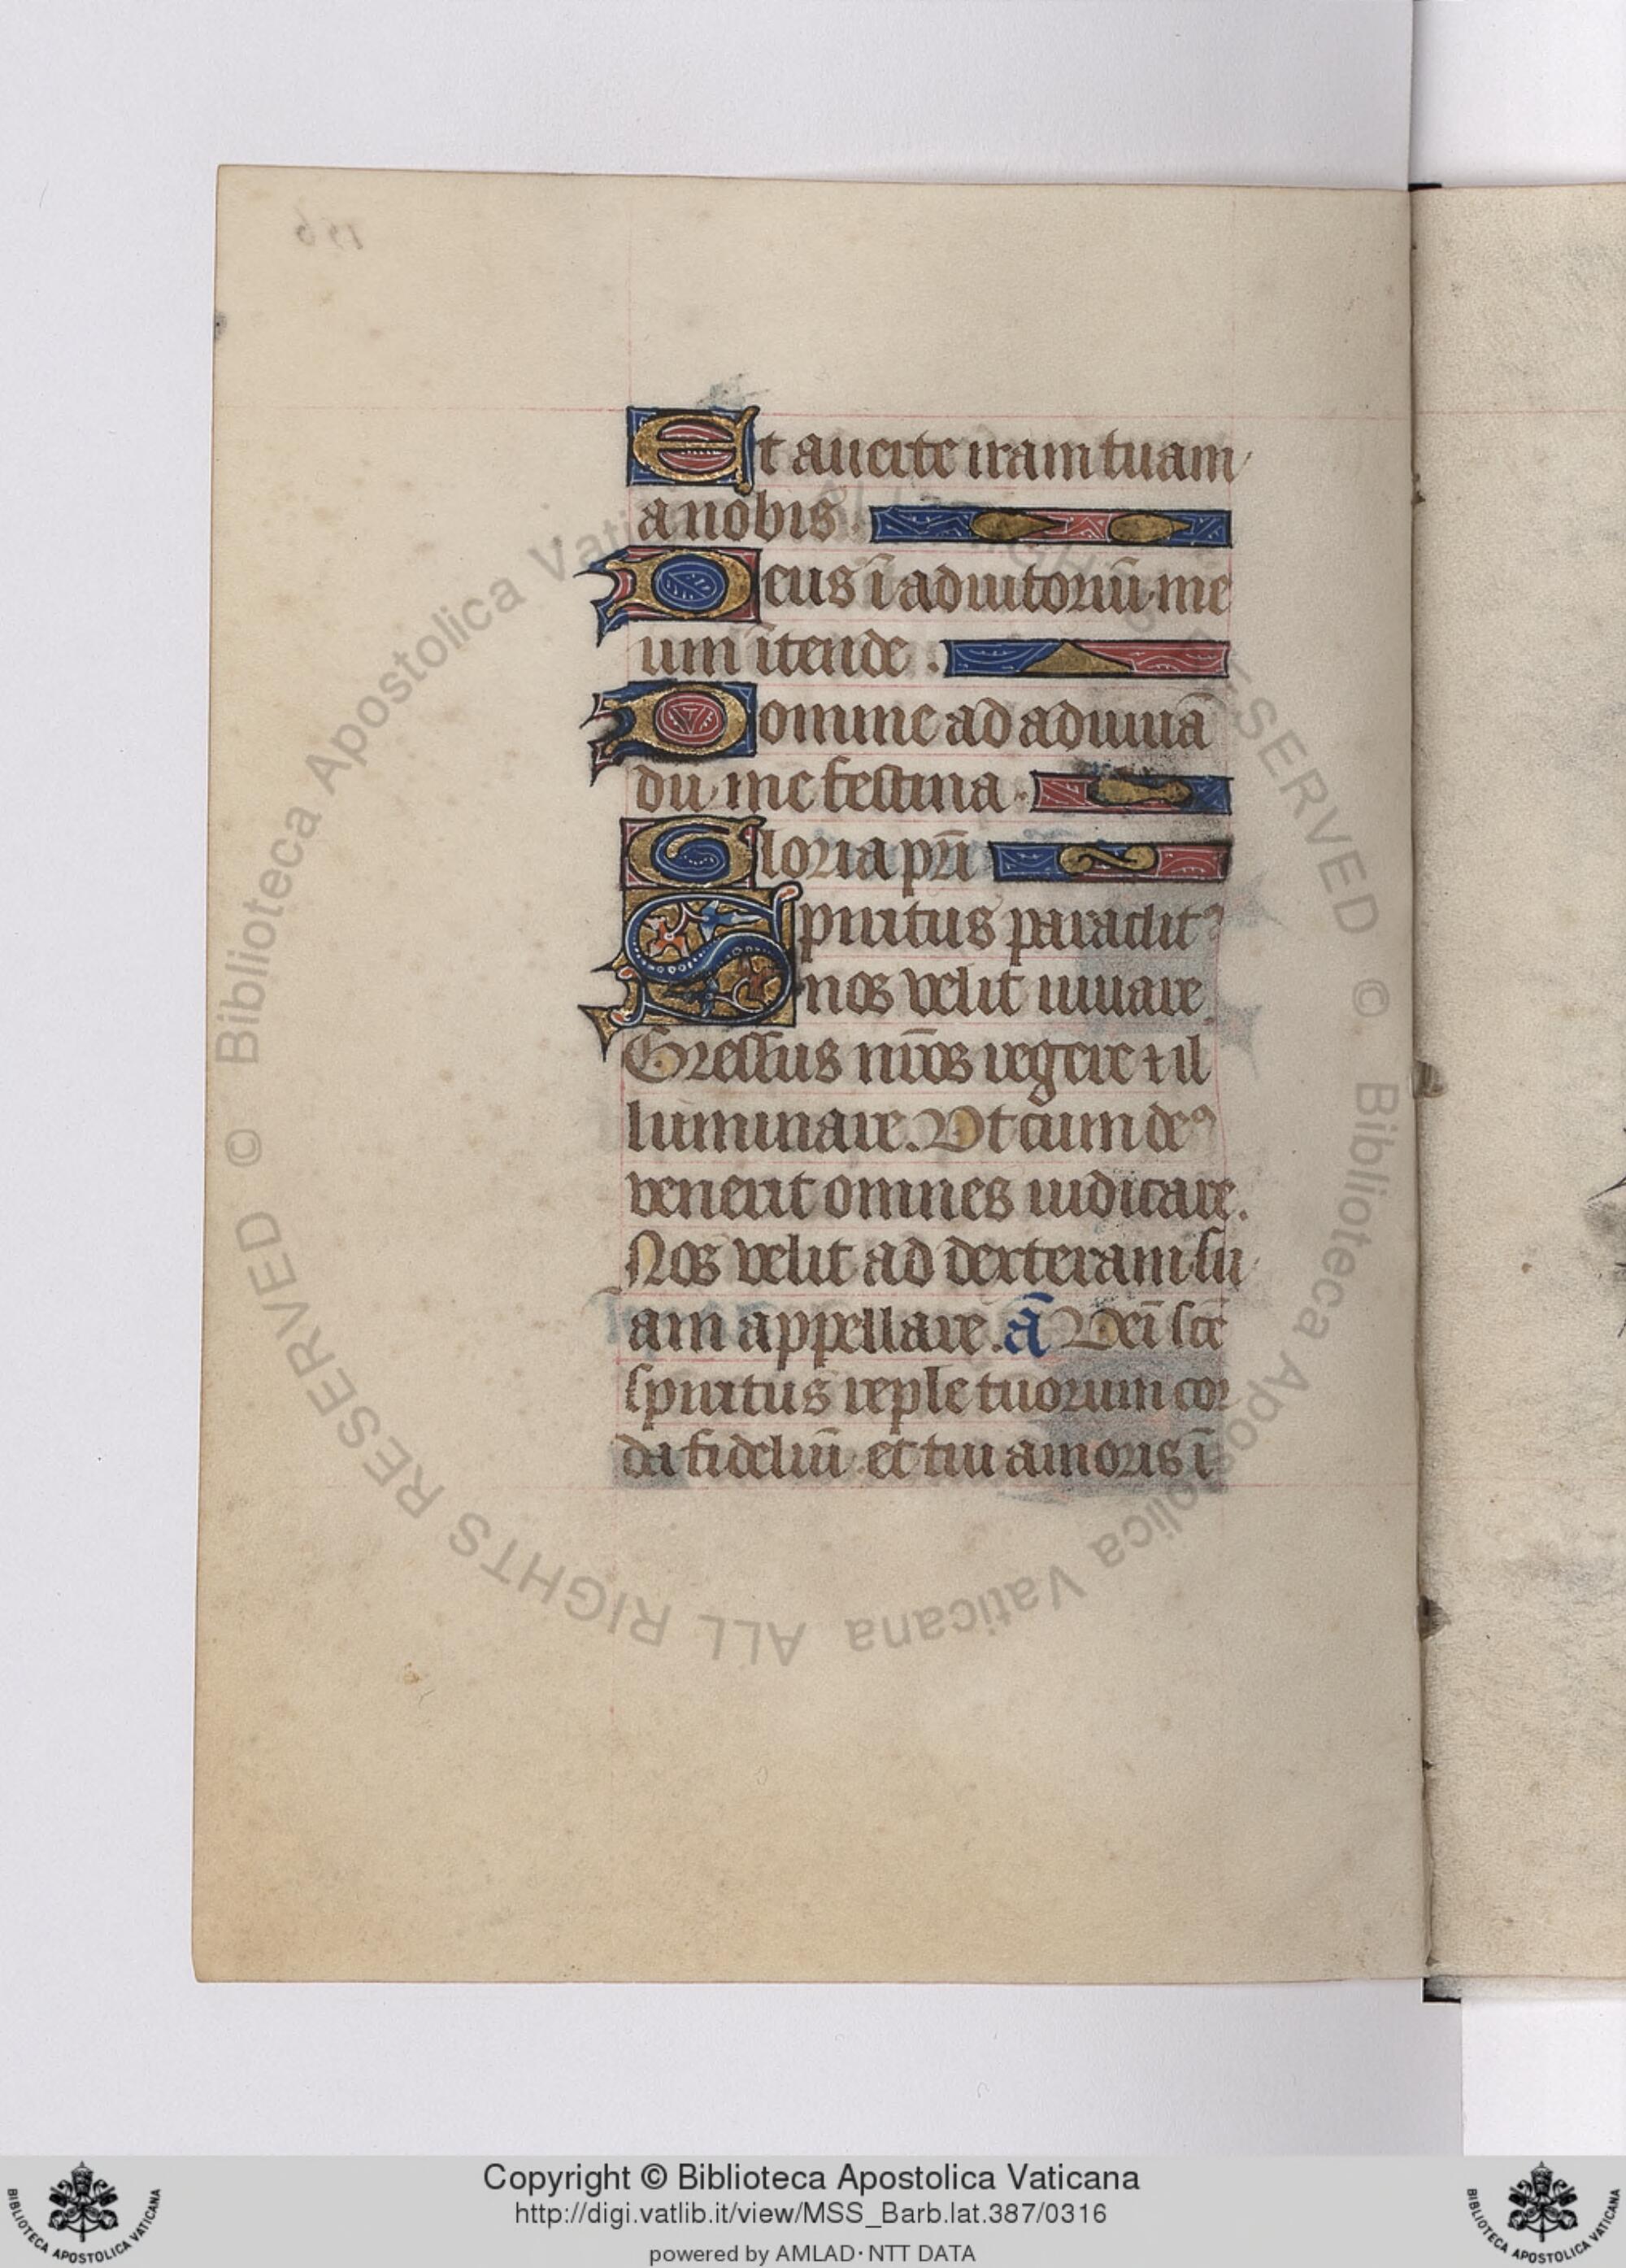 Et auerte iram tuam
a nobis.
Deus ī adiutoriū me
um ītende.
Domine ad adiuuā
du me festina.
Gloria pr̄i
Spiritus paraclitꝰ
nos velit iuuare.
Gressus nr̄os regere ⁊ il
luminare. Vt cum deꝰ
venerit omnes iudicare.
Nos velit ad dexteram su
am appellare. ā Venī scē
spiritus reple tuorum cor
da fideliū et tui amoris ī
© Biblioteca Apostolica Vaticana ALL RIGHTS RESERVED © Biblioteca Apostolica Vaticana ALL RIGHTS RESERVED
Copyright © Biblioteca Apostolica Vaticana
http://digi.vatlib.it/view/MSS_Barb.lat.387/0316
powered by AMLAD·NTT DATA
BIBLIOTECA APOSTOLICA VATICANA
BIBLIOTECA APOSTOLICA VATICANA